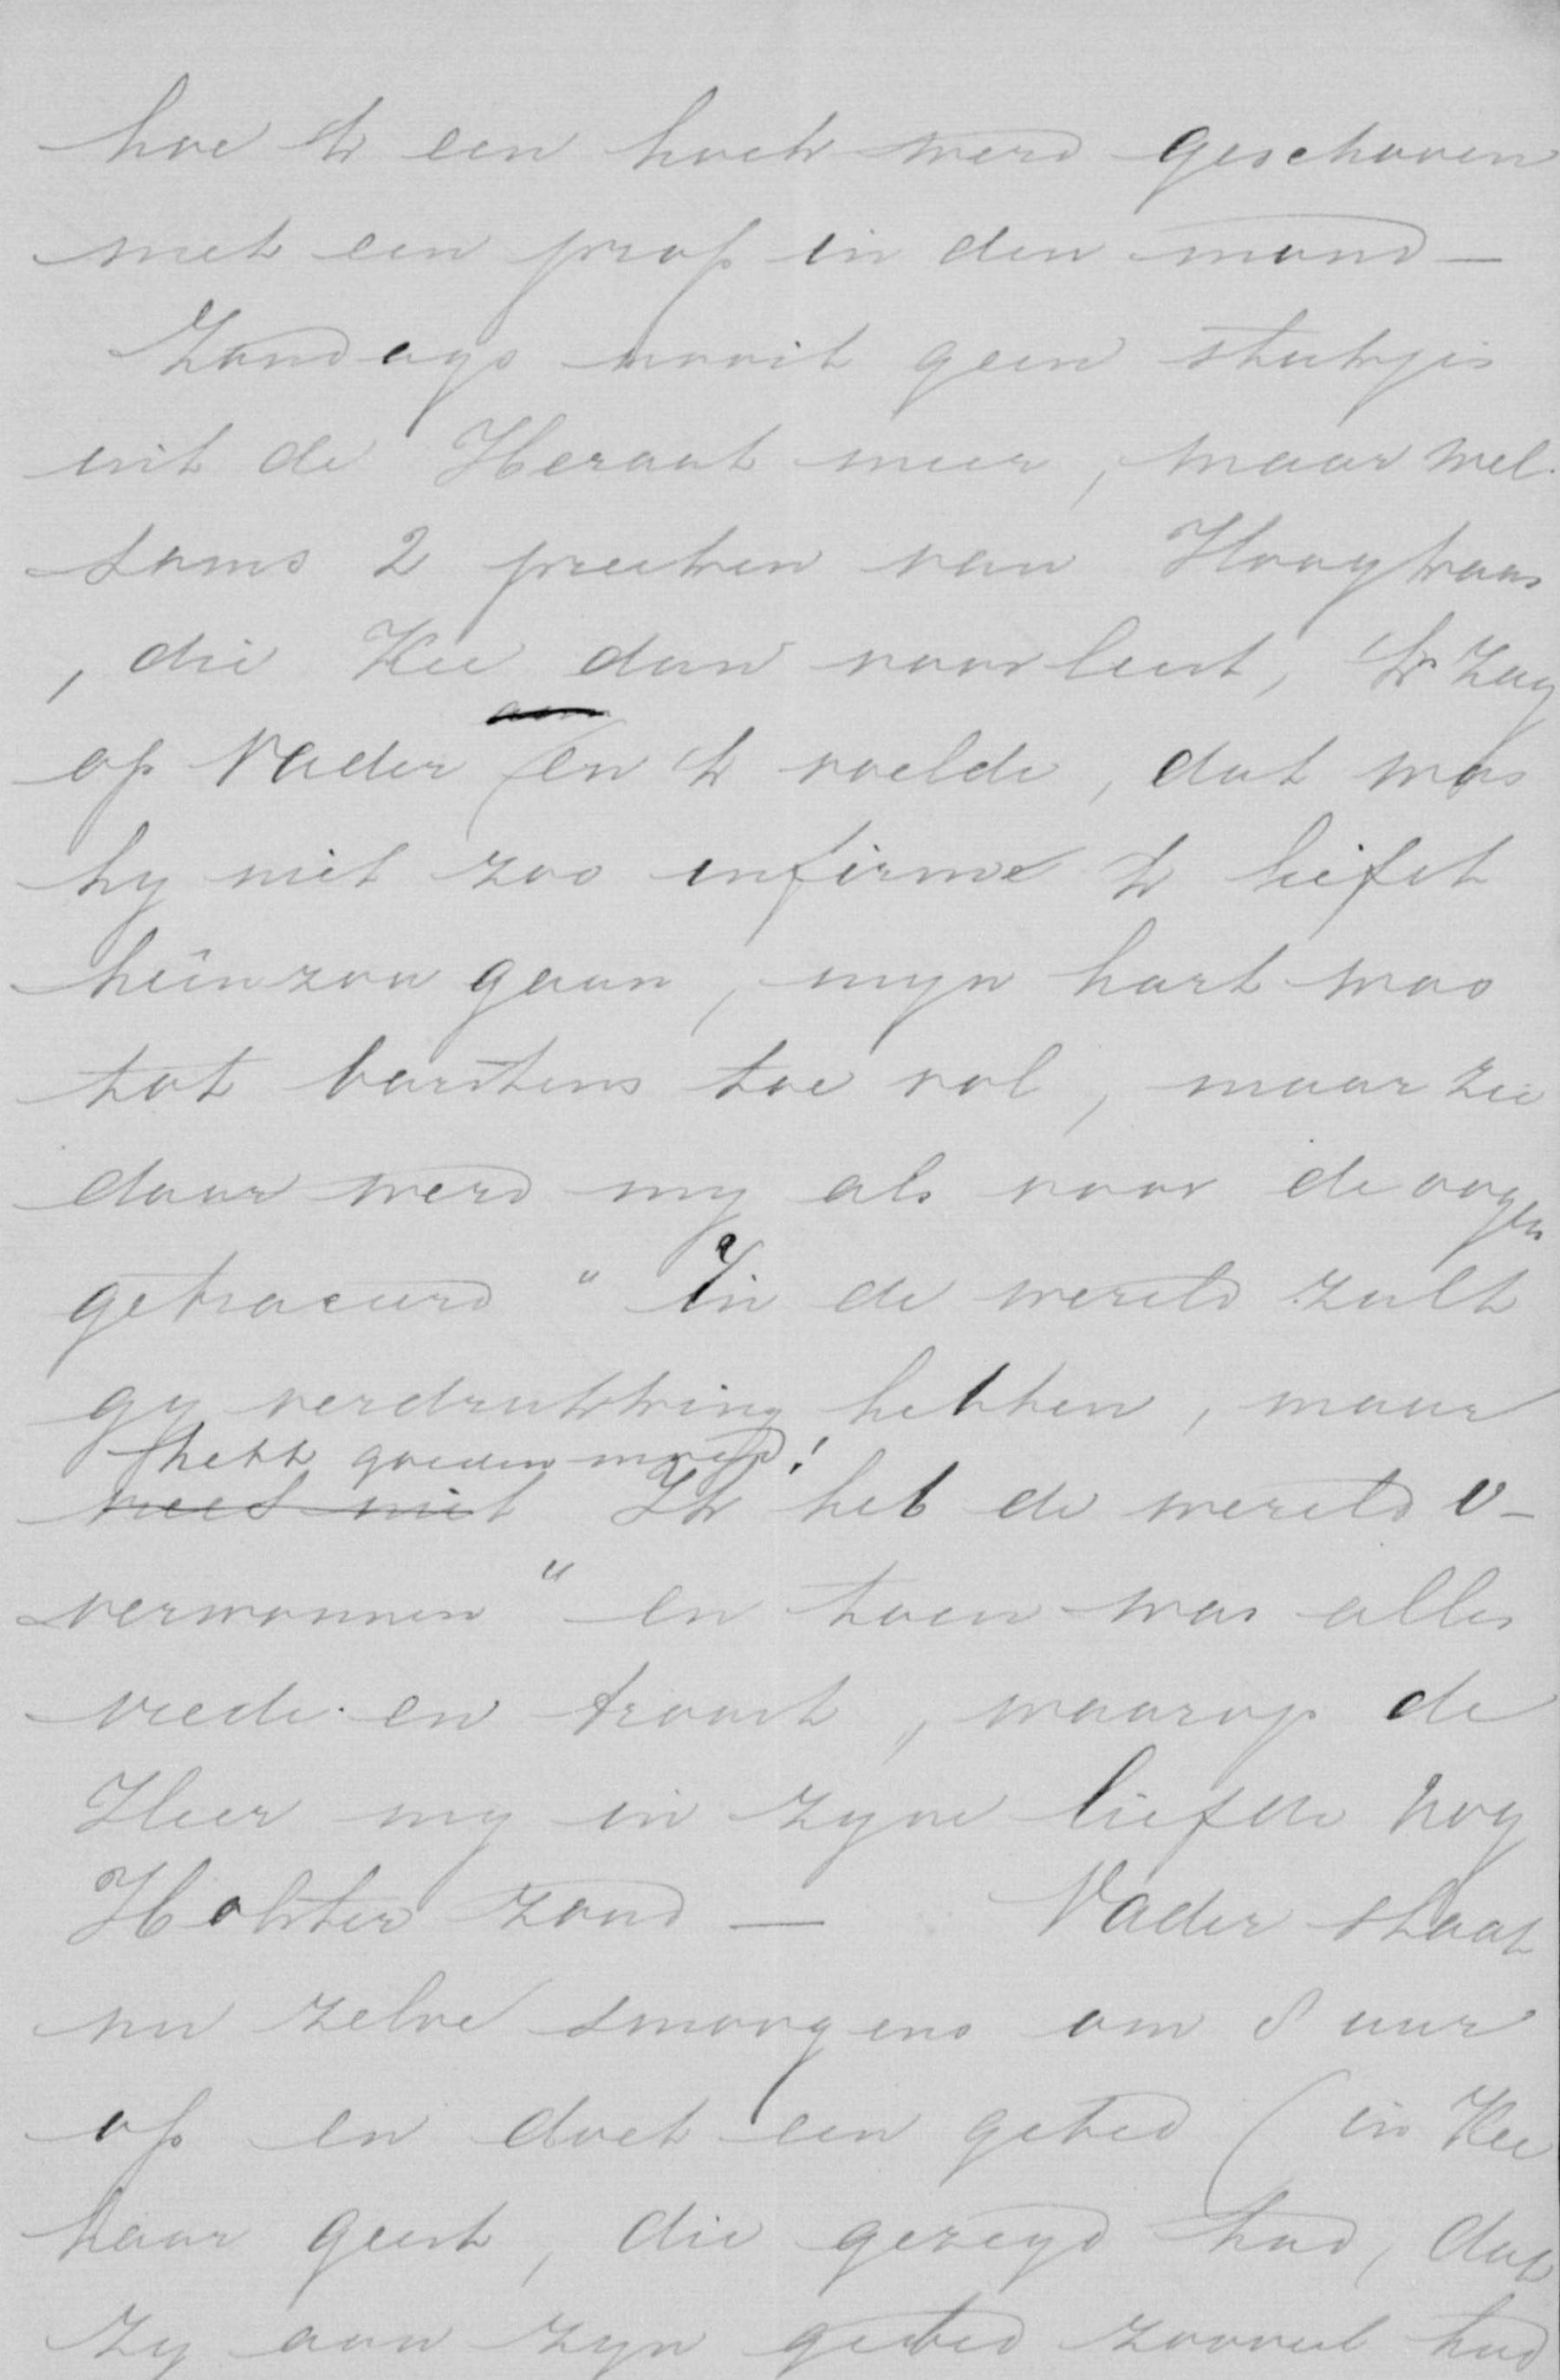 hoe ik een hoek werd geschoven
met een prop in den mond —
Zondags nooit geen stukjes
uit de Heraut meer, maar wel
soms 2 preeken van Hoogtraas
, die Kee dan voorleest, ik zag
op Vader en ik voelde, dat was
hy niet zoo infirme ik liefst
heên zou gaan, myn hart was
tot barstens toe vol, maar zie
daar werd my als voor de oogen
getraceerd " In de wereld zult
gy verdrukking hebben, maar
hebt goeden moed!
vreest niet Ik heb de wereld o-
verwonnen " en toen was alles
vrede en troost, waarop de
Heer my in zyne liefde nog
Holster zond — Vader staat
nu zelve smorgens om 8 uur
op en doet een gebed (in Kee
haar geest, die gezegd had, dat
zy aan zyn gebed zooveel had